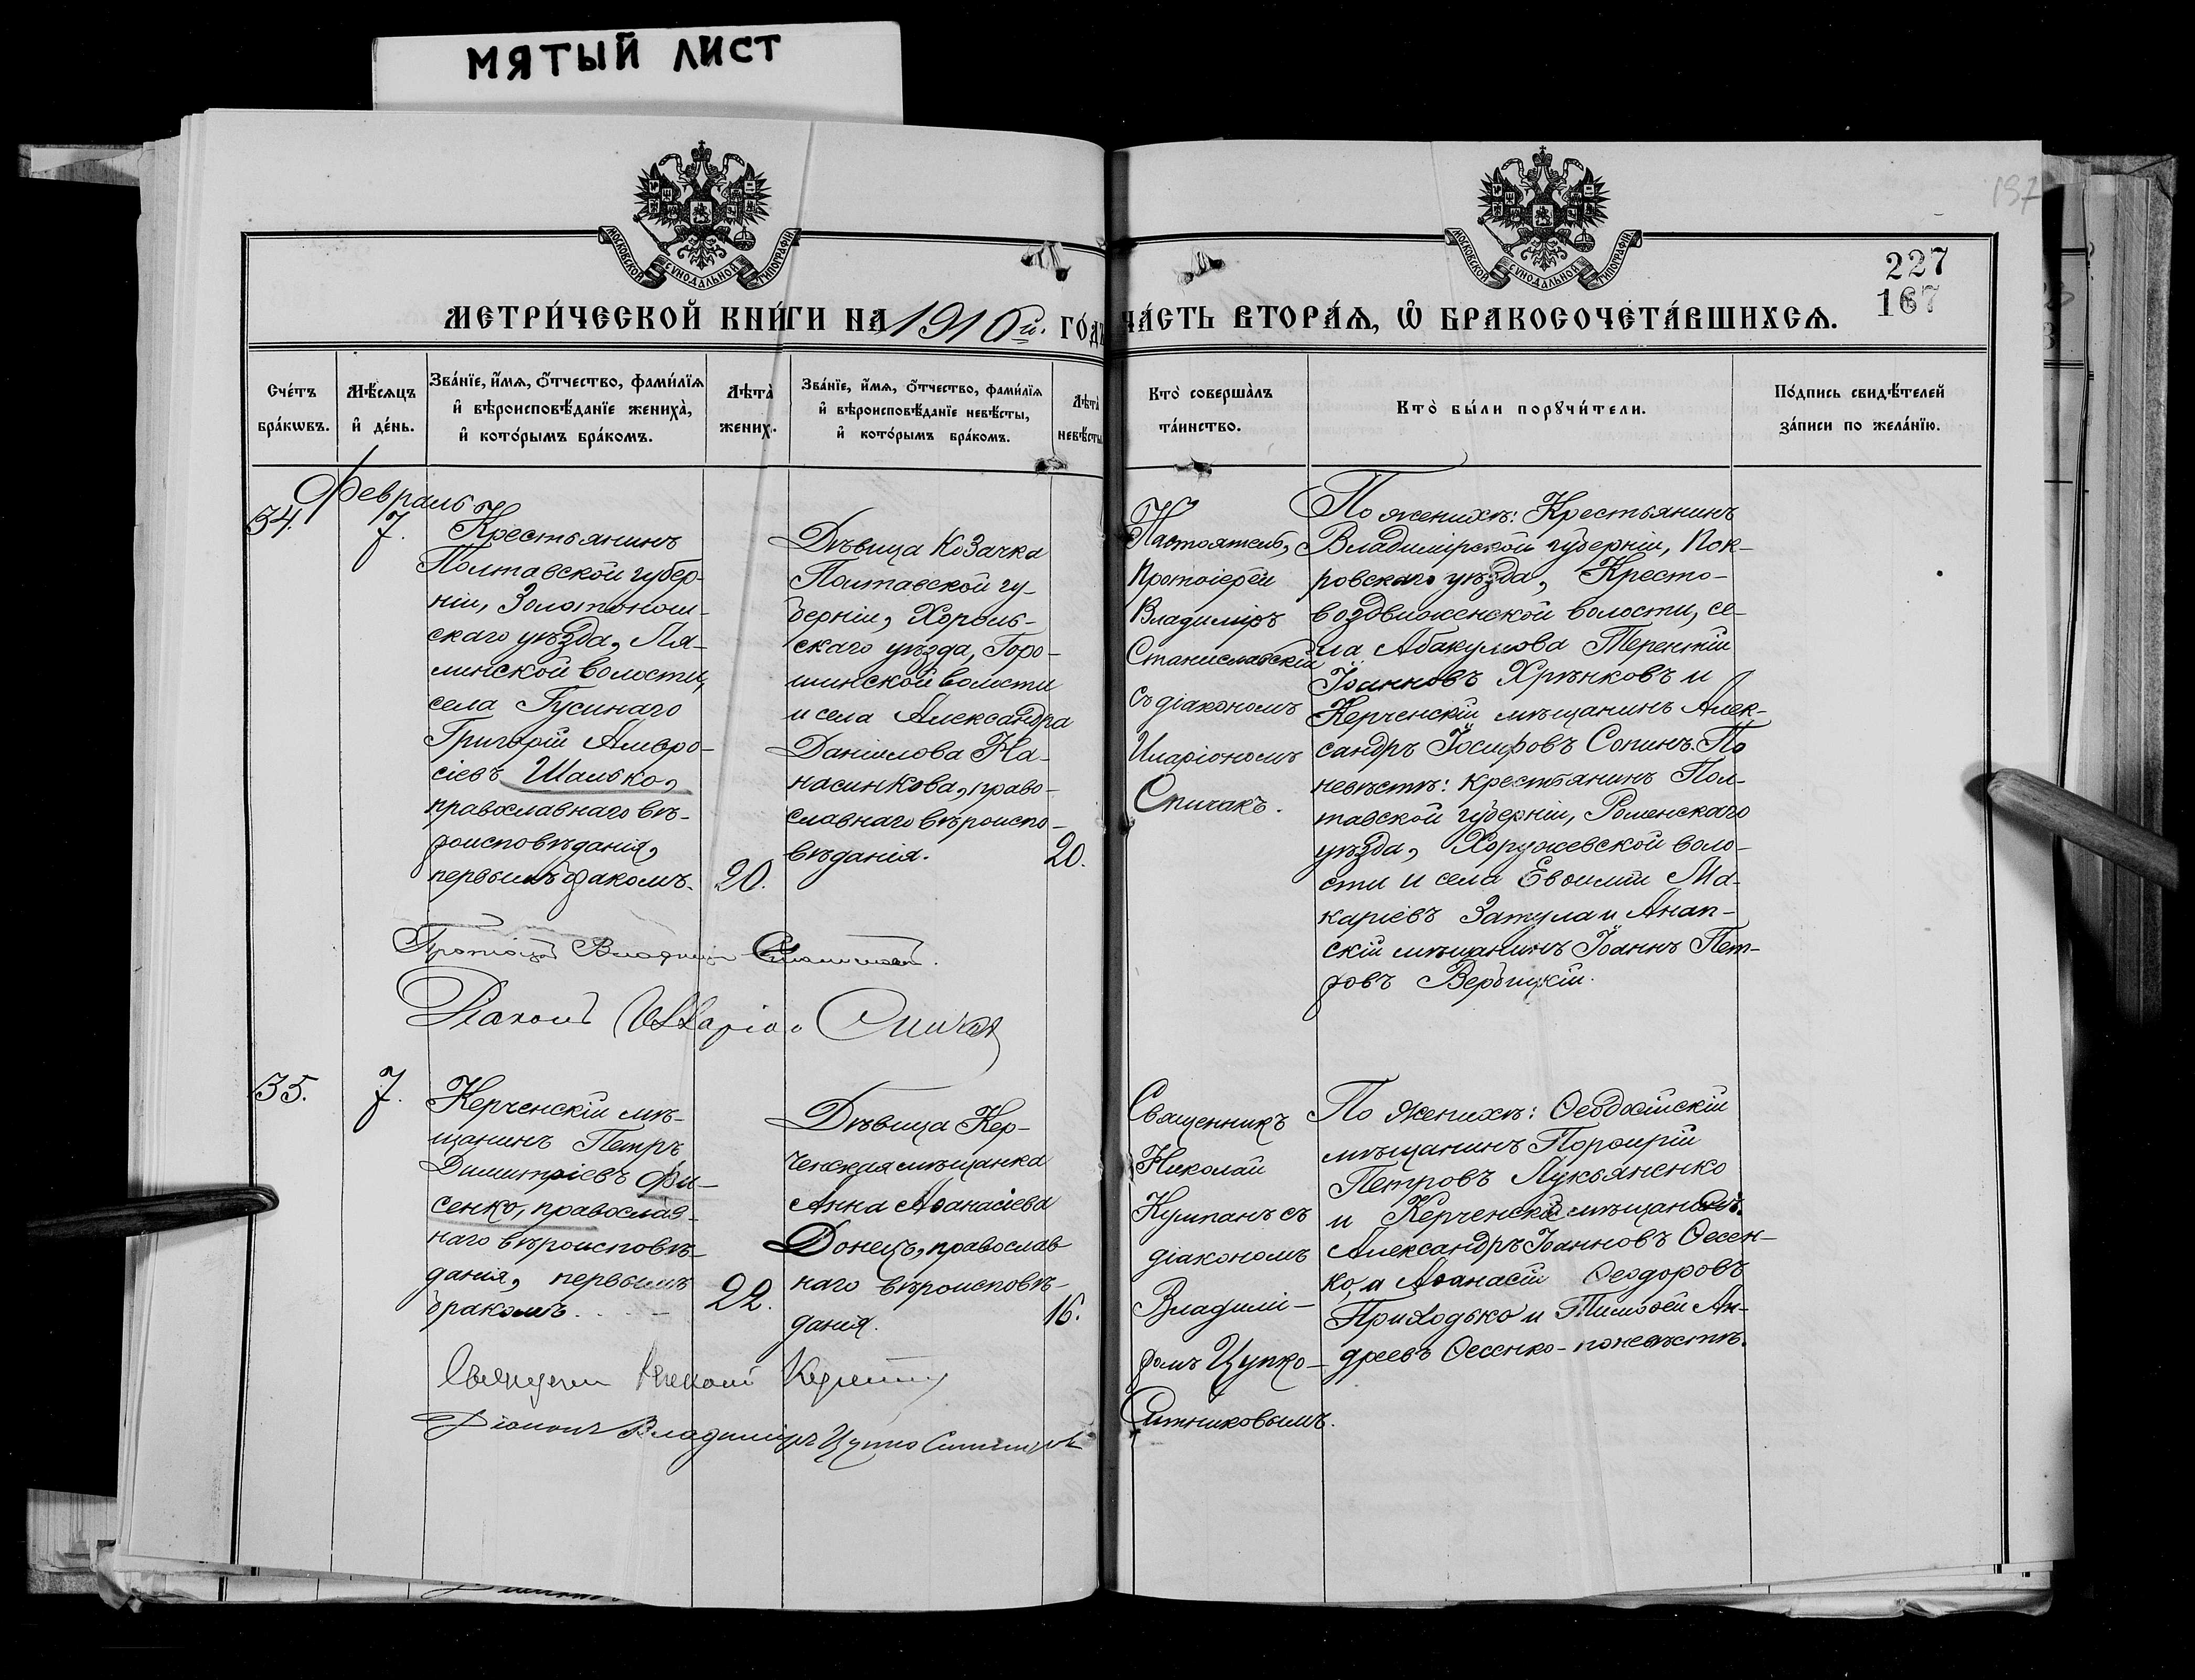 МЯТЫЙ ЛИСТ
МОСКОВСКОЙ СѴНОДАЛЬНОЙ ТИПОГРАФІИ.
МОСКОВСКОЙ СѴНОДАЛЬНОЙ ТИПОГРАФІИ.
197
227
167
МЕТРИ́ЧЕСКОЙ КНИ́ГИ НА 1910й. ГО́ДЪ
ЧА́СТЬ ВТОРА́Ѧ, Ѡ҆ БРАКОСОЧЕТА́ВШИХСѦ.
Сче́тъ бра́кѡвъ.
Мѣ́сѧцъ и҆ де́нь.
Зва́нїе, и҆́мѧ, ѻ҆́тчество, фами́лїѧ
и҆ вѣроисповѣ́данїе жениха̀,
и҆ кото́рымъ бра́комъ.
Лѣта̀ жених.
Зва́нїе, и҆́мѧ, ѻ҆́тчество, фами́лїѧ
и҆ вѣроисповѣ́данїе невѣ́сты,
и҆ кото́рымъ бра́комъ.
Лѣта̀ невѣ́сты
Кто̀ соверша̀лъ та́инство.
Кто̀ бы́ли порꙋчи́тели.
По́дпись свидѣ́телей за́писи по жела́нїю.
Февраль
34.
7.
Крестьянинъ
Полтавской губер-
ніи, Золотонош-
скаго уѣзда, Ля-
линской волости,
села Гусинаго
Григорій Амвро-
сіевъ Шалько,
православнаго вѣ-
роисповѣданія,
первымъ бракомъ.
20.
Дѣвица козачка
Полтавской гу-
берніи, Хороль-
скаго уѣзда, Горо-
шинской волости
и села Александра
Даніилова На-
насинкова, право-
славнаго вѣроиспо-
вѣданія.
20.
Настоятель,
Протоіерей
Владиміръ
Станиславскій
съ діакономъ
Иларіономъ
Спичакъ.
По женихѣ: Крестьянинъ
Владимірской губерніи, Пок-
ровскаго уѣзда, Кресто-
воздвиженской волости, се-
ла Абакумова Терентій
Іоанновъ Хрѣнковъ и
Керченскій мѣщанинъ Алек-
сандръ Іосифовъ Сопинъ. По
невѣстѣ: крестьянинъ Пол-
тавской губерніи, Роменскаго
уѣзда, Хоружевской воло-
сти и села Евѳимій Ма-
каріевъ Затула и Анап-
скій мѣщанинъ Іоаннъ Пет-
ровъ Вербицкій.
Діаконъ Илларіо Спичак
35.
7.
Керченскій мѣ-
щанинъ Петръ
Димитріевъ Фи-
сенко, православ-
наго вѣроисповѣ-
данія, первымъ
бракомъ.
22.
Дѣвица Кер-
ченская мѣщанка
Анна Аѳанасіева
Донецъ, православ
наго вѣроисповѣ-
данія.
16.
Священникъ
Николай
Кумпанъ съ
діакономъ
Владимі-
ромъ Цупко-
Ситниковымъ.
По женихѣ: Ѳеодосійскій
мѣщанинъ Порѳирій
Петровъ Лукьяненко
и Керченскій мѣщанинъ
Александръ Іоанновъ Ѳесен-
ко, а Аѳанасій Ѳеодоровъ
Приходько и Тимоѳей Ан-
дреевъ Ѳесенко - по невѣстѣ.
Николай
Діаконъ Владиміръ Цупко Ситников